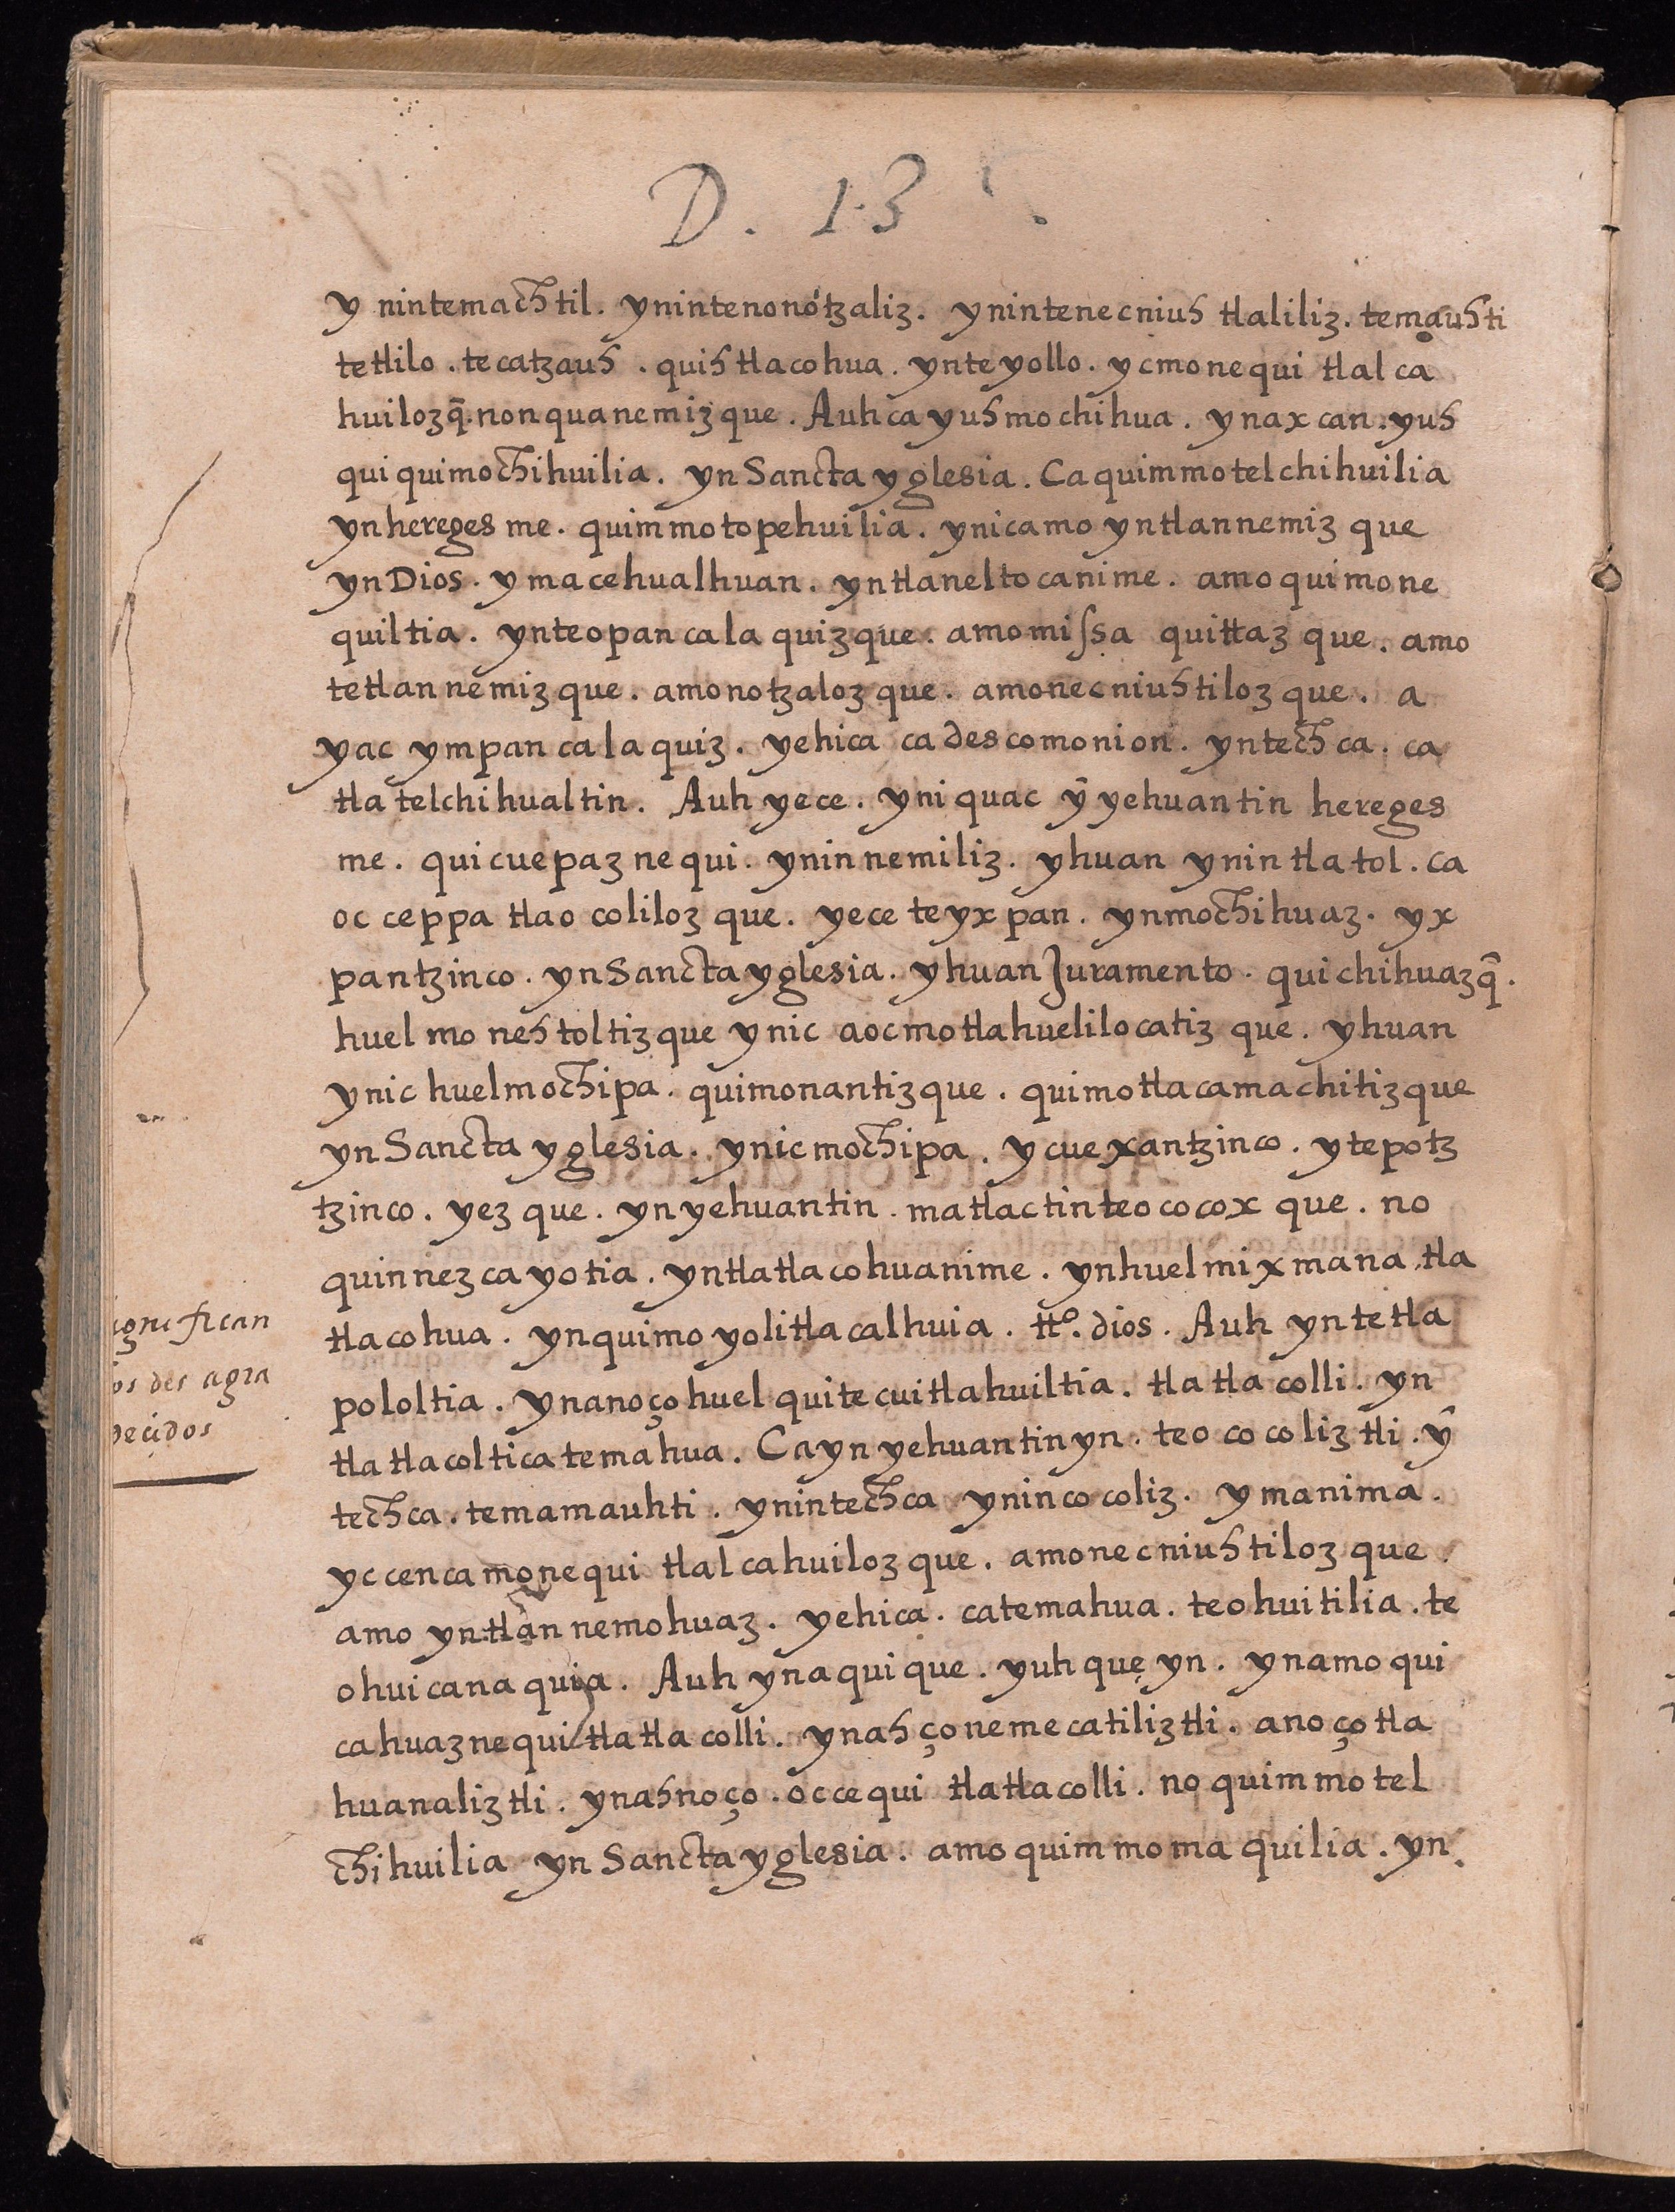 D. 13
y nintemachtil. ynintenonótzaliz. ynintenecniuh tlaliliz. temauhti
tetlilo. tecatzauh. quihtlacohua. ynteyollo. ycmonequi tlalca
huilozq̃. nonquanemizque. Auhcayuhmochihua. ynaxcan. yuh
quiquimochihuilia. ynSanctayglesia. Caquimmotelchihuilia
ynheregesme. quimmotopehuilia. ynicamo yntlannemizque
ynDios. ymacehualhuan. yntlaneltocanime. amoquimone
quiltia. ynteopancalaquizque. amomissa quittazque. amo
tetlannemizque. amonotzalozque. amonecniuhtilozque. a
yac ympancalaquiz. yehica cadescomonion. yntechca. ca
tlatelchihualtin. Auhyece. yniquac ỹyehuantin hereges
me. quicuepaznequi. yninnemiliz. yhuan ynintlatol. ca
oc ceppa tlaocolilozque. yece teyxpan. ynmochihuaz. yx
pantzinco. ynSanctayglesia. yhuanJuramento. quichihuazq̃.
huel monehtoltizque ynic aocmotlahuelilocatizque. yhuan
ynic huelmochipa. quimonantizque. quimotlacamachitizque
ynSancta yglesia. ynicmochipa. ycuexantzinco. ytepotz
tzinco. yezque. ynyehuantin. matlactinteococoxque. no
quinnezcayotia. yntlatlacohuanime. ynhuelmixmana, tla
tlacohua. ynquimoyolitlacalhuia. tt.º dios. Auh yntetla
pololtia. ynanoçohuelquitecuitlahuiltia. tlatlacolli. yn
tlatlacolticatemahua. Caynyehuantinyn. teococoliztli. ỹ
techca. temamauhti. ynintechca ynincocoliz. ymanima.
yccencamonequi tlalcahuilozque. amonecniuhtilozque.
amo yntlan nemohuaz. yehica. catemahua. teohuitilia. te
ohuicanaquia. Auh ynaquique. yuhque yn. ynamoqui
cahuaznequi tlatlacolli. ynahçonemecatiliztli. anoço tla
huanaliztli. ynahnoço. occequi tlatlacolli. no quimmotel
chihuilia ynSanctayglesia. amoquimmomaquilia. yn
ignifican
os des agra
decidos